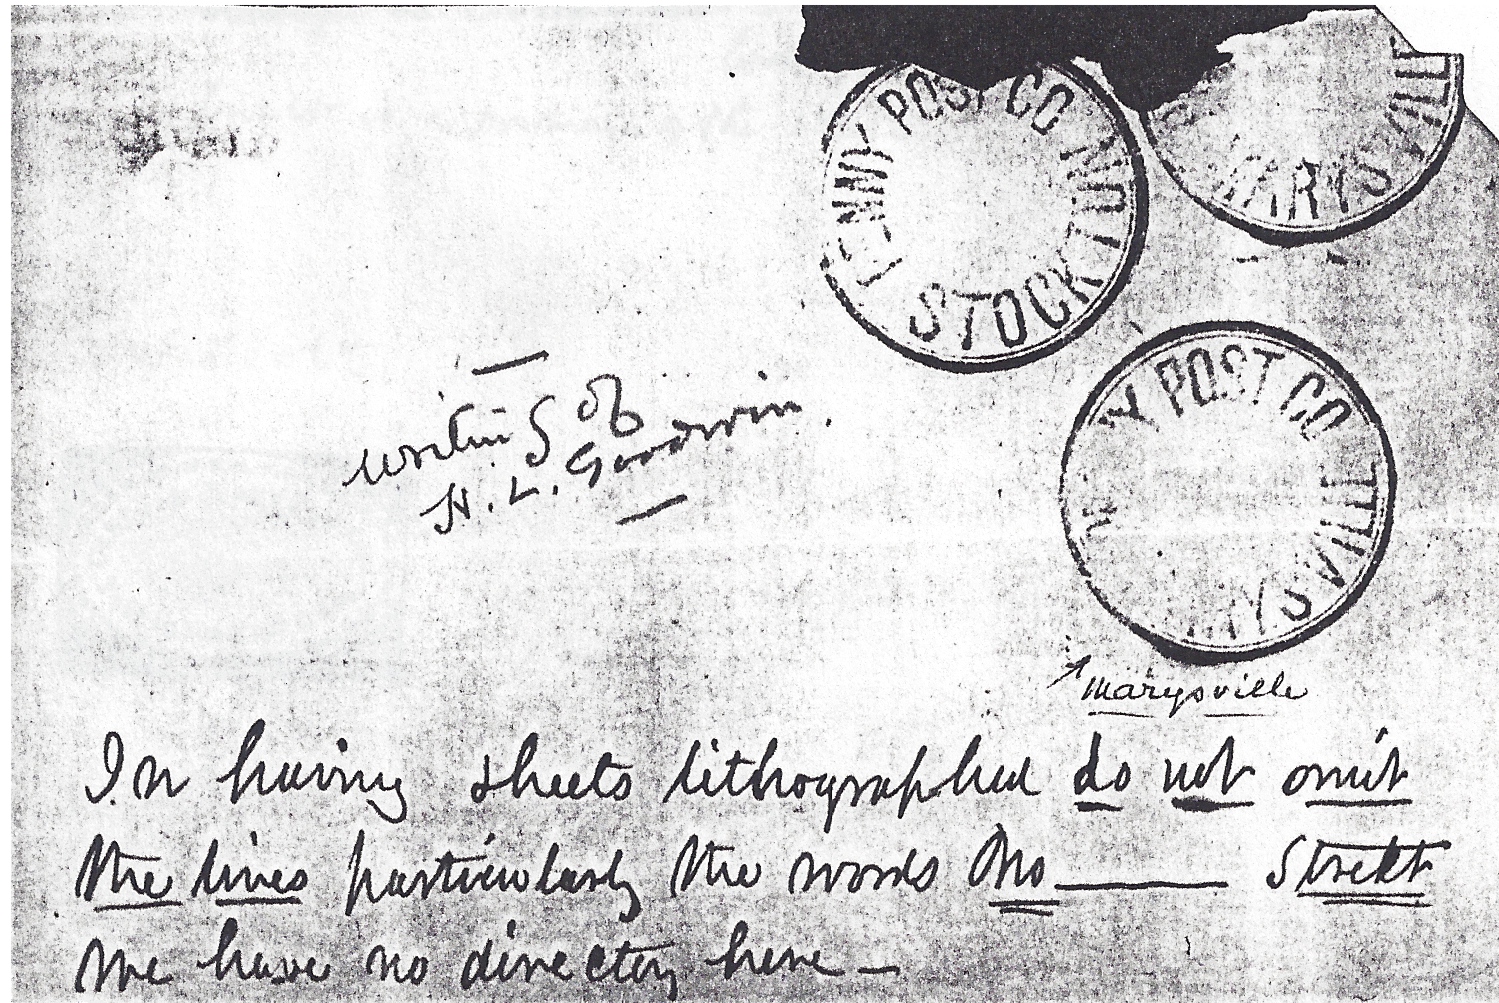 PENNY POST CO
STOCKTON
MARYSVILLE
POST CO
writing of
H. L. Goodwin.
Marysville
In having sheets lithographed do not omit
the lines particularly the words No______ Street
We have no directory here —